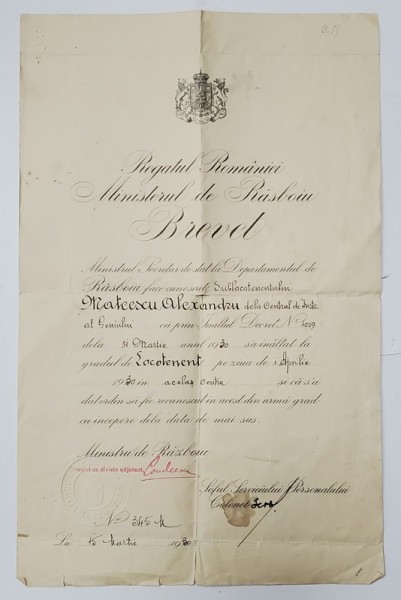 Regatul României
Ministerul de Răsboiu
Brevet
Ministrul Secretar de stat la Departamentul de
Răsboiu face cunoscut Sublocotenentului
Mateescu Alexandru dela Centrul de Instr.
al Geniului că prin Înaltul Decret No 1029
dela 31 Martie anul 1930 s'a înălțat la
gradul de Locotenent pe ziua de 1 Aprilie
1930 în acelaș centru și că s'a
dat ordin să fie recunoscut în acest din urmă grad
cu începere dela data de mai sus.
Ministru de Războiu
General de divizie adjutant,
Șeful Serviciului Personalului
Colonel
No 345
La 15 Martie 1930